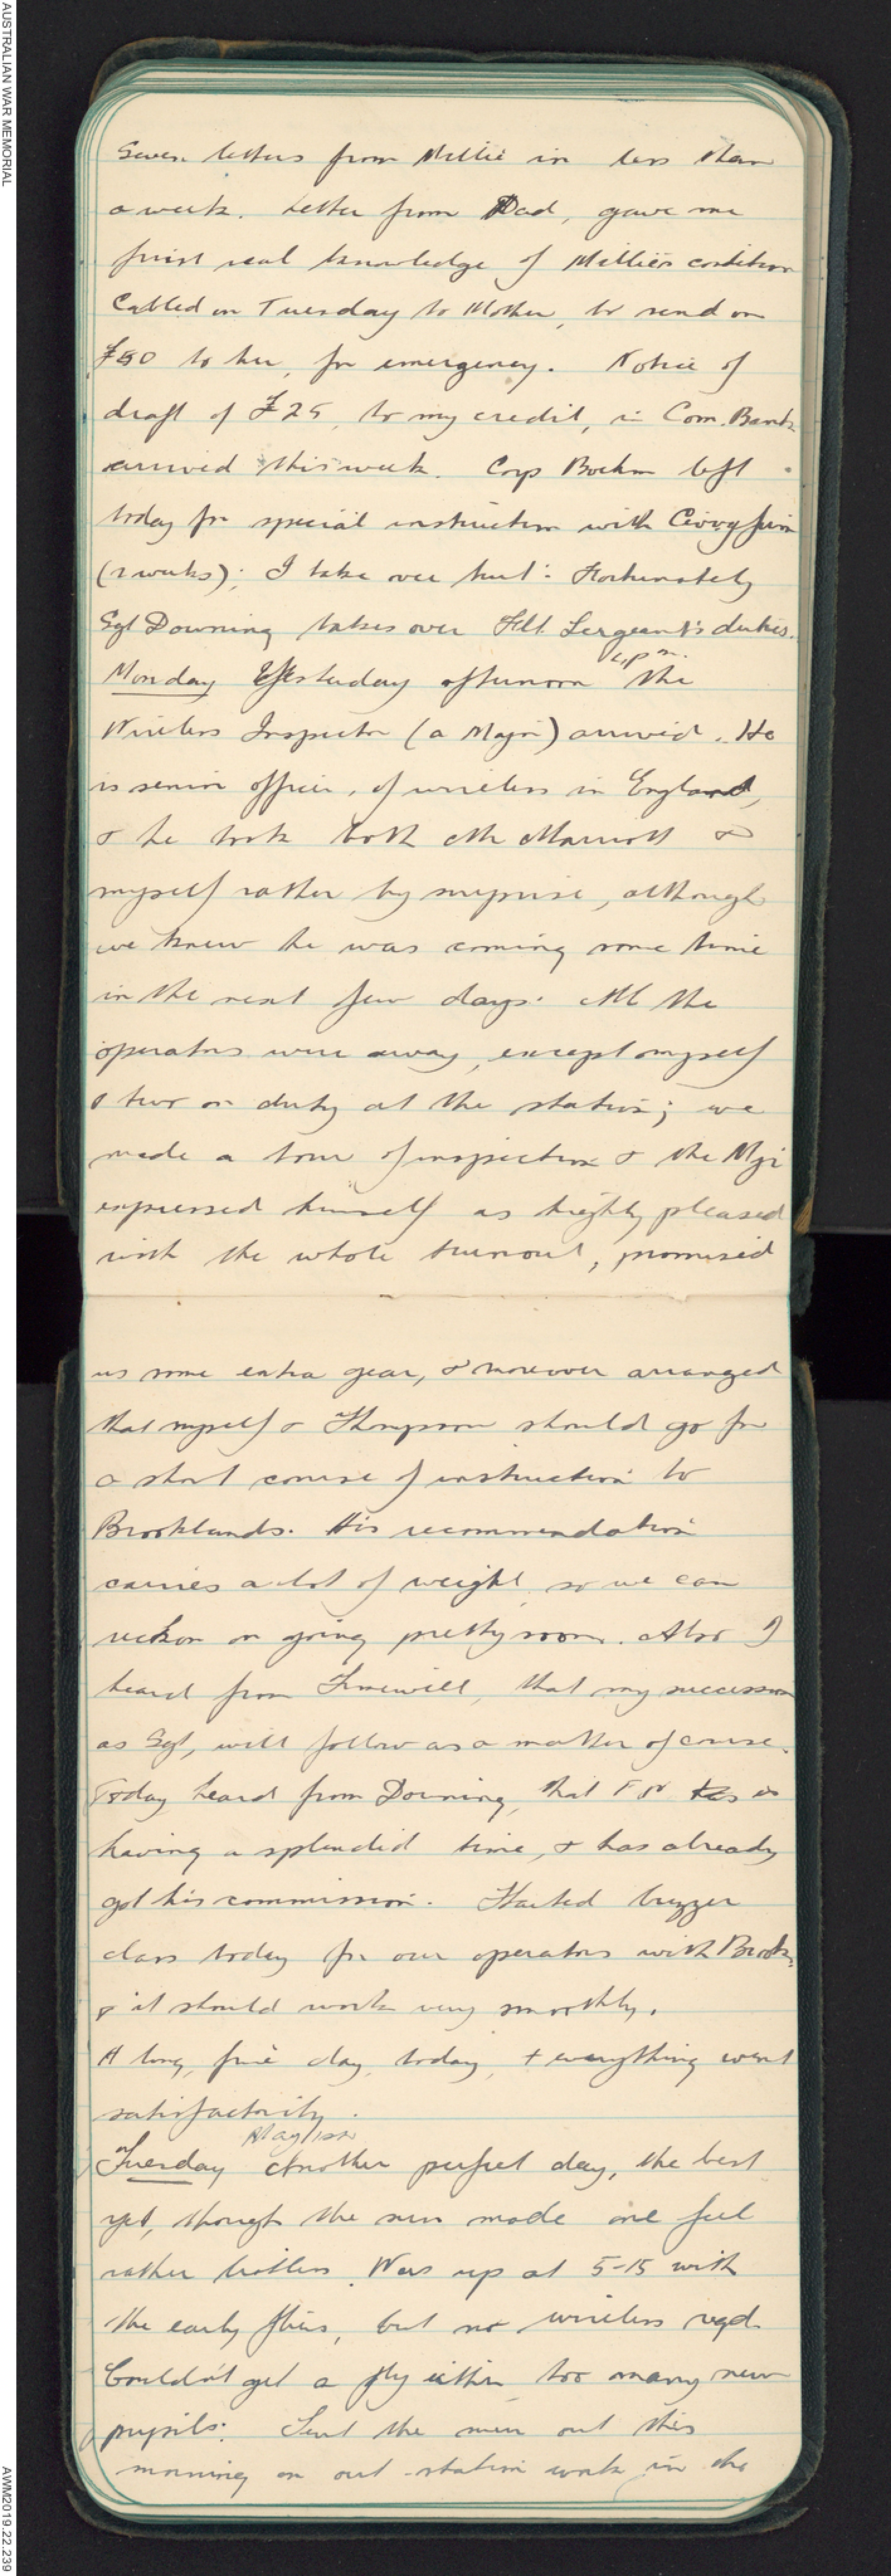 AUSTRALIAN WAR MEMORIAL
Seven letters from Millie in less than
a week. Letter from Dad, gave me
first real knowledge of Millie's condition
Cabled on Tuesday to Mother, to send on
£50 to her, for emergency. Notice of
draft of £25, to my credit, in Com. Bank
arrived this week. Corp Boehm left
today for special instruction with Civvy firm
(2 weeks); I take over hut. Fortunately
Sgt Downing takes over Flt. Sergeant's duties.
4 p.m.
Monday Yesterday afternoon the
Wireless Inspector (a Major) arrived. He
is senior officer, of wireless in England,
& he took both Mr Marriott &
myself rather by surprise, although
we knew he was coming some time
in the next few days. All the
operators were away, except myself
& two on duty at the station; we
made a tour of inspection & the Mjr
expressed himself as highly pleased
with the whole turnout, promised
us some extra gear, & moreover arranged
that myself & Thompson should go for
a short course of instruction to
Brooklands. His recommendation
carries a lot of weight, so we can
reckon on going pretty soon. Also I
heard from, that my succession
as Sgt, will follow as a matter of course.
Today heard from Downing, that is
having a splendid time, & has already
got his commission. Started buzzer
class today for our operators with Brook,
& it should work very smoothly.
A long, fine day, today, & everything went
satisfactorily.
May 1st
Tuesday Another perfect day, the best
yet, though the sun made one feel
rather listless. Was up at 5-15 with
the early fliers, but no wireless reqd.
Couldn't get a fly either too many new
pupils. Sent the men out this
morning on out-station work in the
AWM2019.22.239